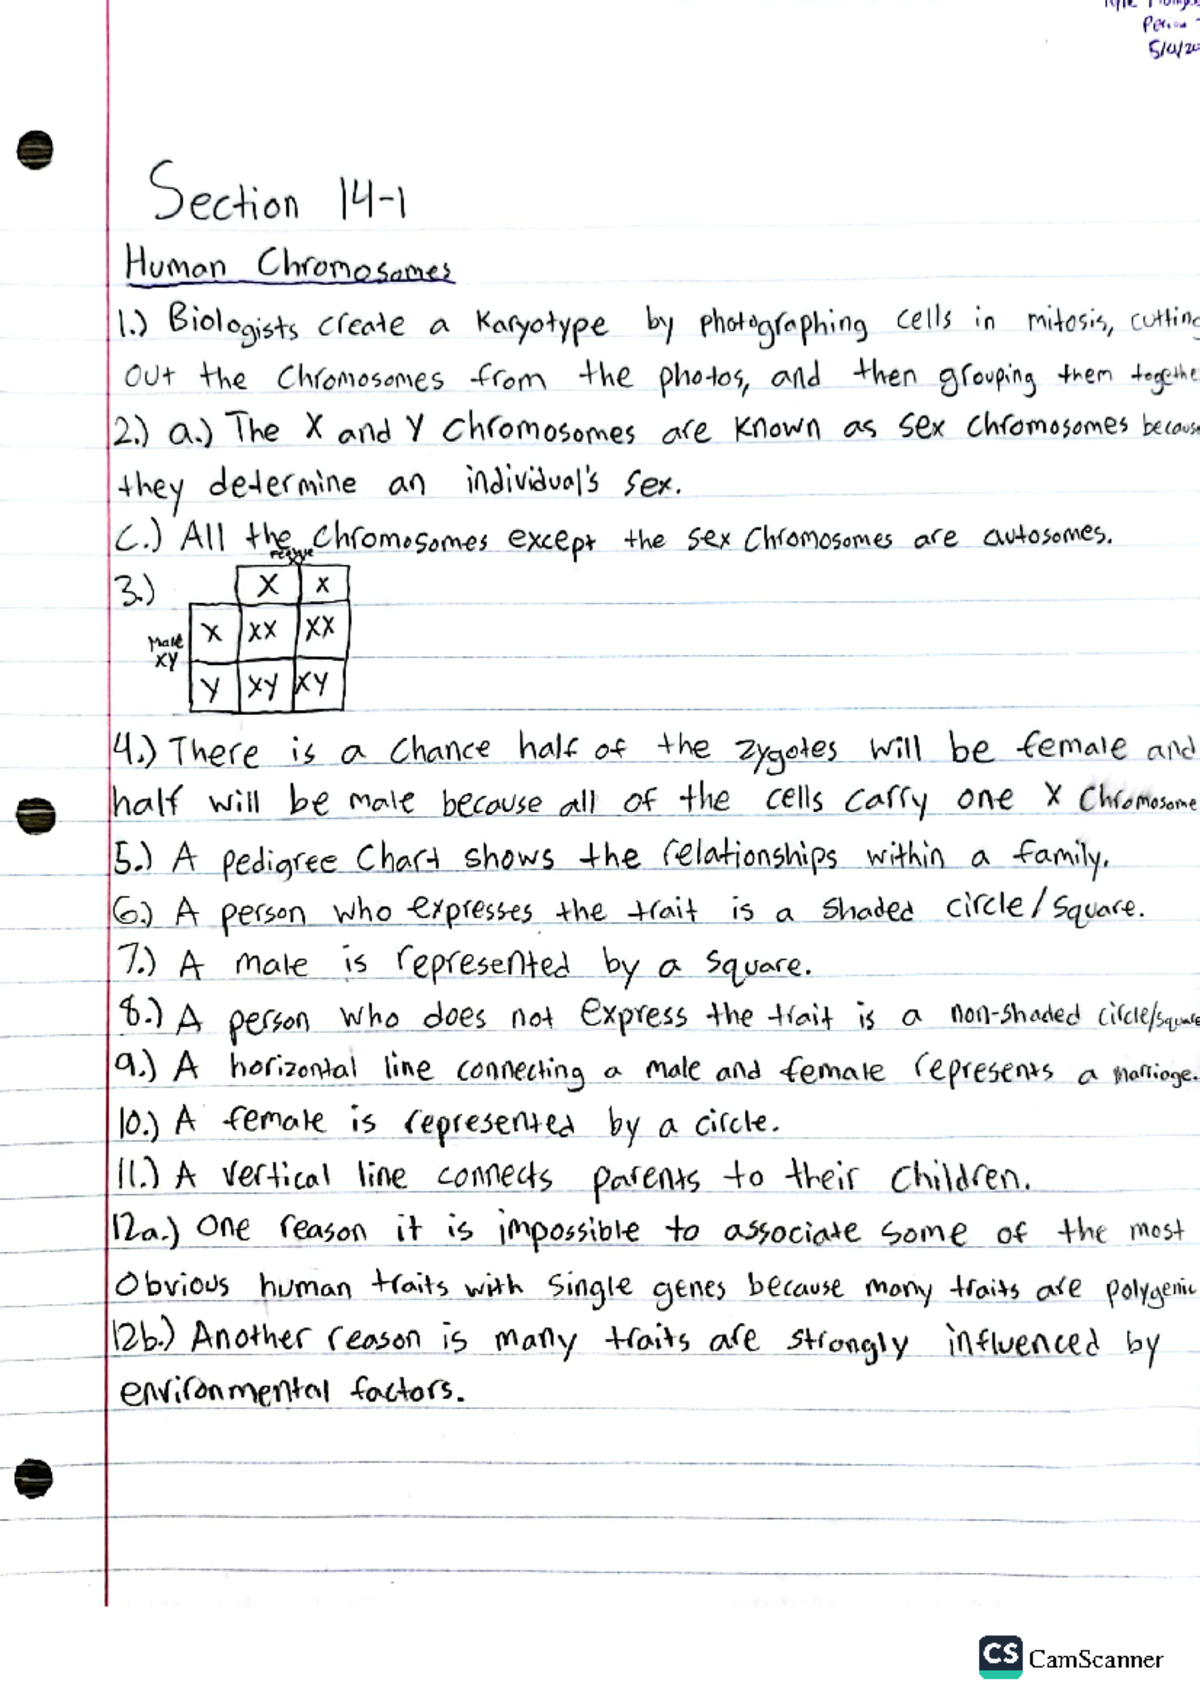 Period
5/4/20
Section 14-1
Human Chromosomes
1.) Biologists create a Karyotype by photographing cells in mitosis, cutting
out the chromosomes from the photos, and then grouping them togethe
2.) a.) The X and Y chromosomes are known as sex chromosomes because
they determine an individual's sex.
C.) All the chromosomes except the sex chromosomes are autosomes.
3.)
X X
Male X XX XX
XY
Y XY XY
4.) There is a chance half of the zygotes will be female and
half will be male because all of the cells carry one X chromosome
5.) A pedigree chart shows the relationships within a family.
6.) A person who expresses the trait is a shaded circle/square.
7.) A male is represented by a square.
8.) A person who does not express the trait is a non-shaded circle/square
9.) A horizontal line connecting a male and female represents a marriage.
10.) A female is represented by a circle.
11.) A vertical line connects parents to their children.
12a.) One reason it is impossible to associate some of the most
obvious human traits with single genes because many traits are polygenic
12b.) Another reason is many traits are strongly influenced by
environmental factors.
CS CamScanner